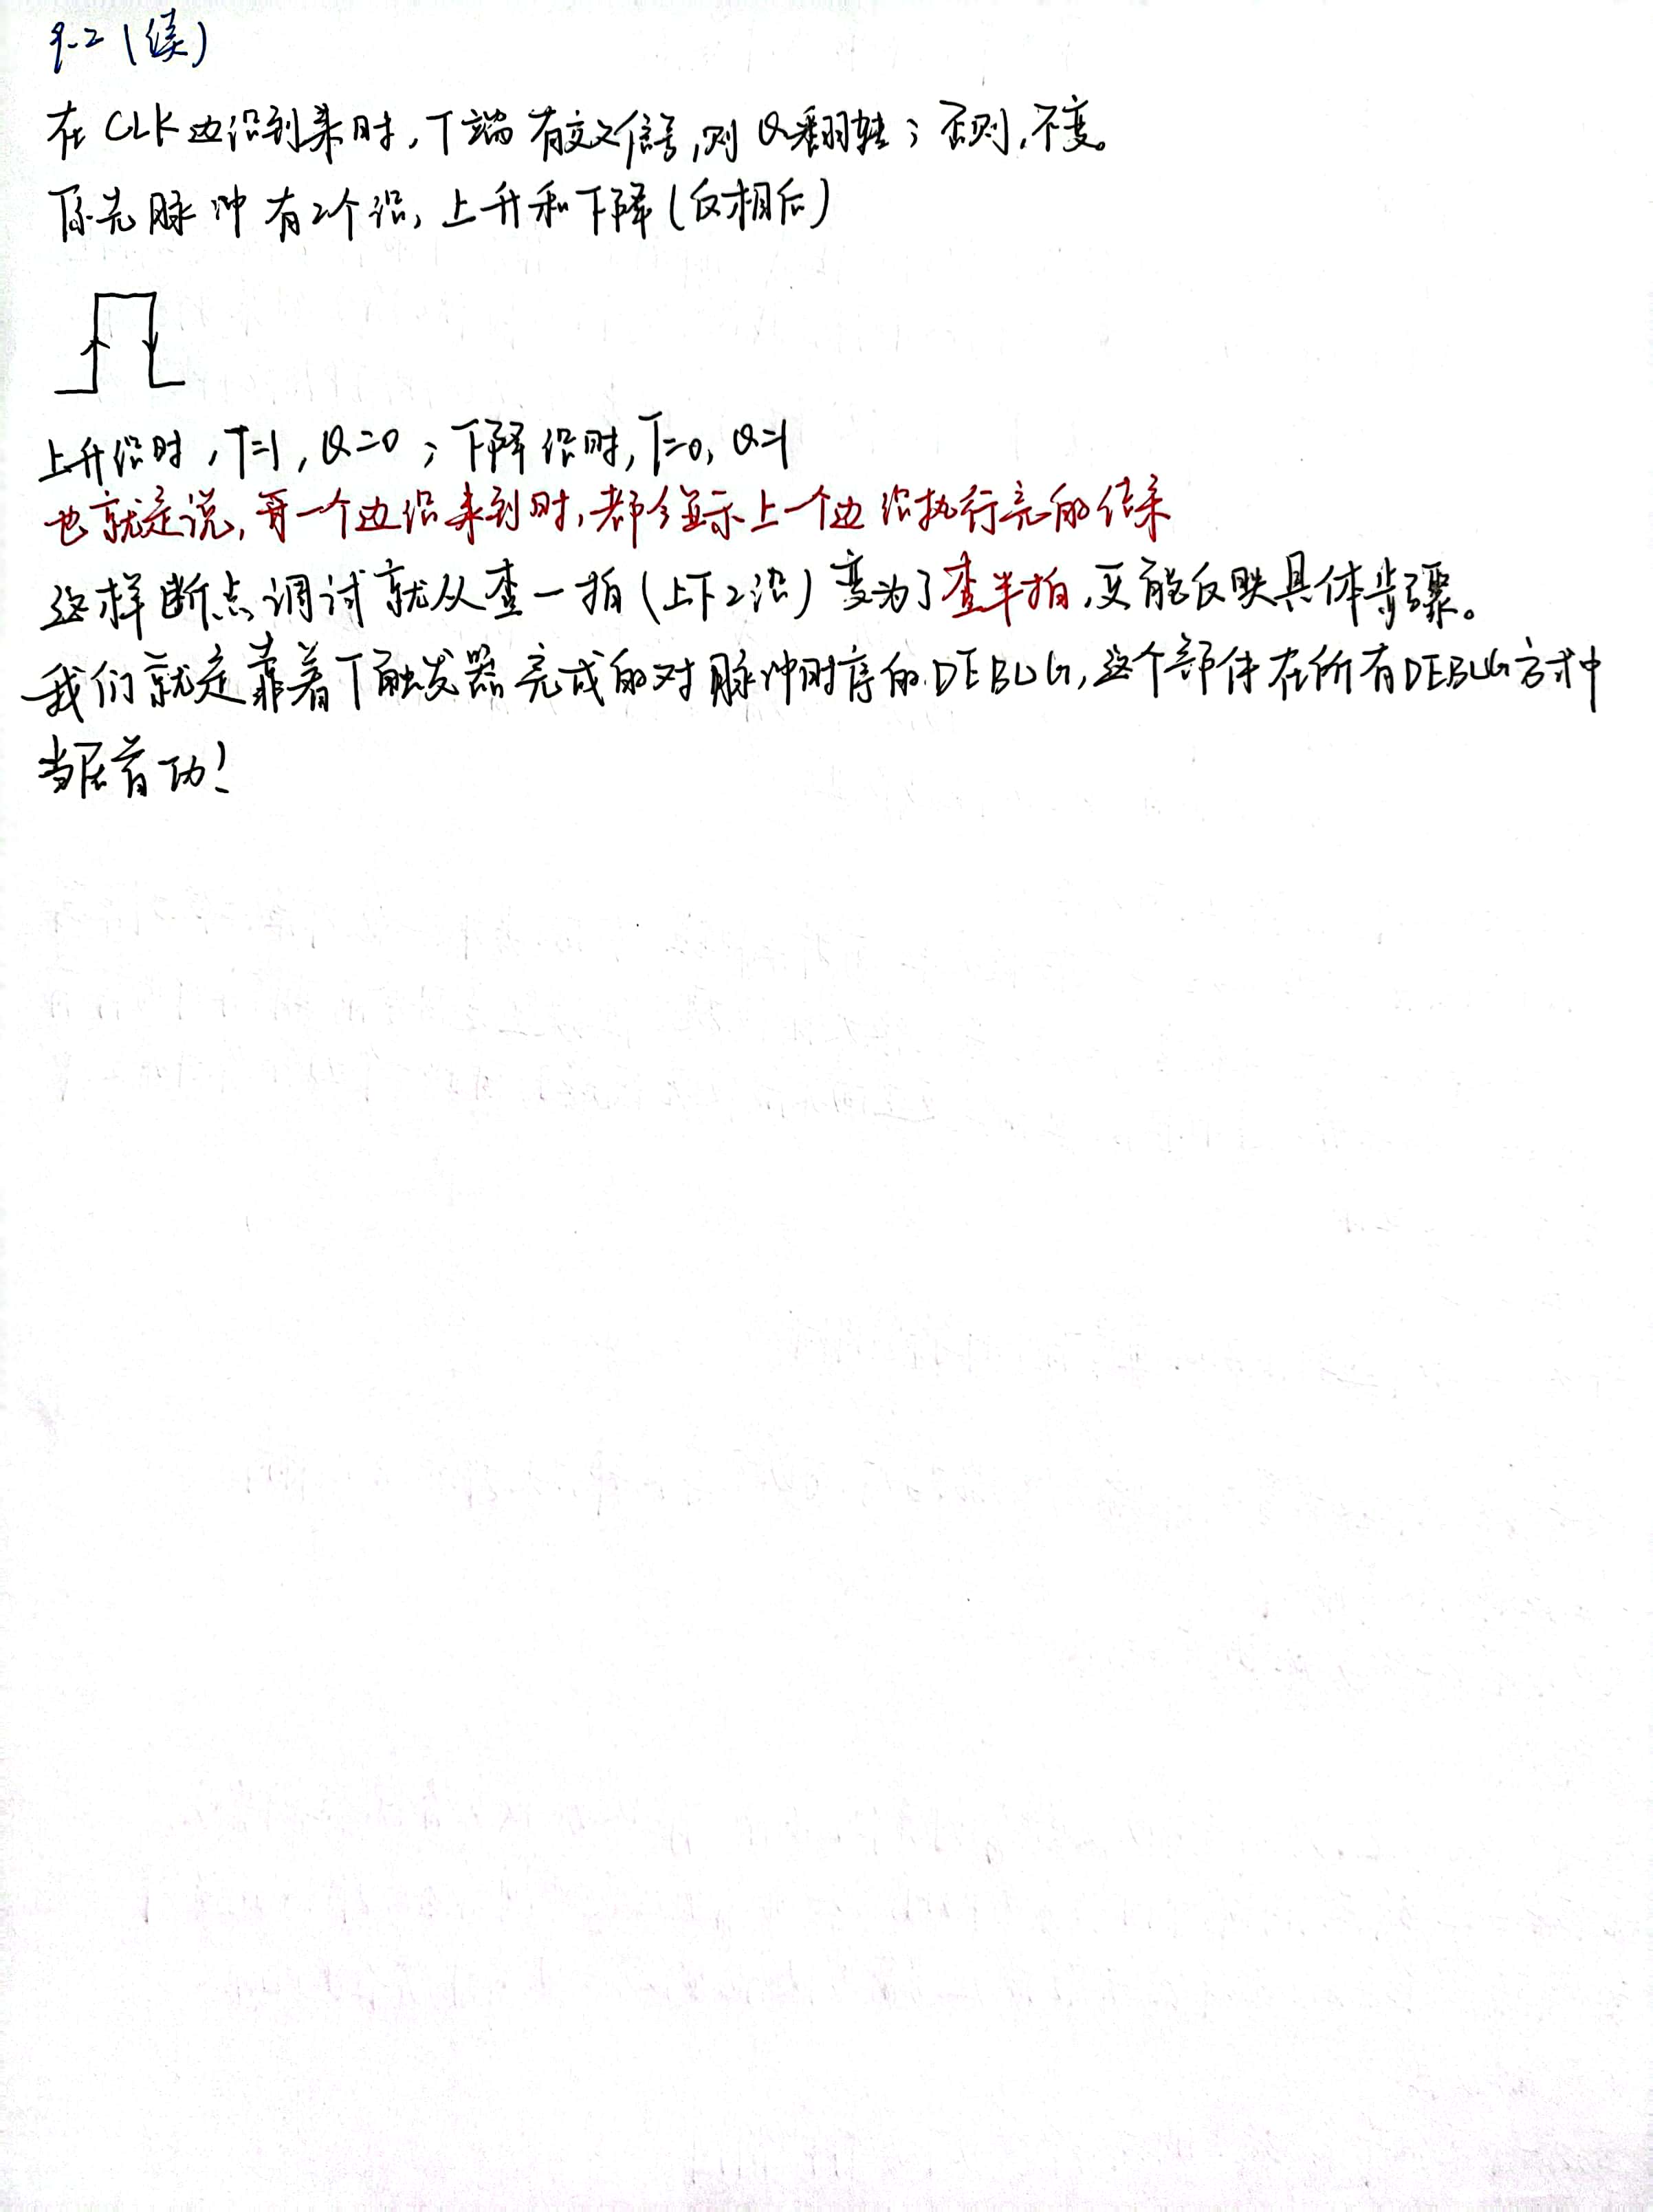 9.2(续)
在CLK边沿到来时,T端有交叉信号,则Q翻转;否则,不变。
原先脉冲有2个沿,上升和下降(反相后)
上升沿时,T=1,Q=0;下降沿时,T=0,Q=1
也就是说,每一个边沿来到时,都会显示上一个边沿执行完的结果
这样断点调试就从查一拍(上下2沿)变为了查半拍,更能反映具体步骤。
我们就是靠着T触发器完成的对脉冲时序的DEBUG,这个部件在所有DEBUG方式中
当居首功!